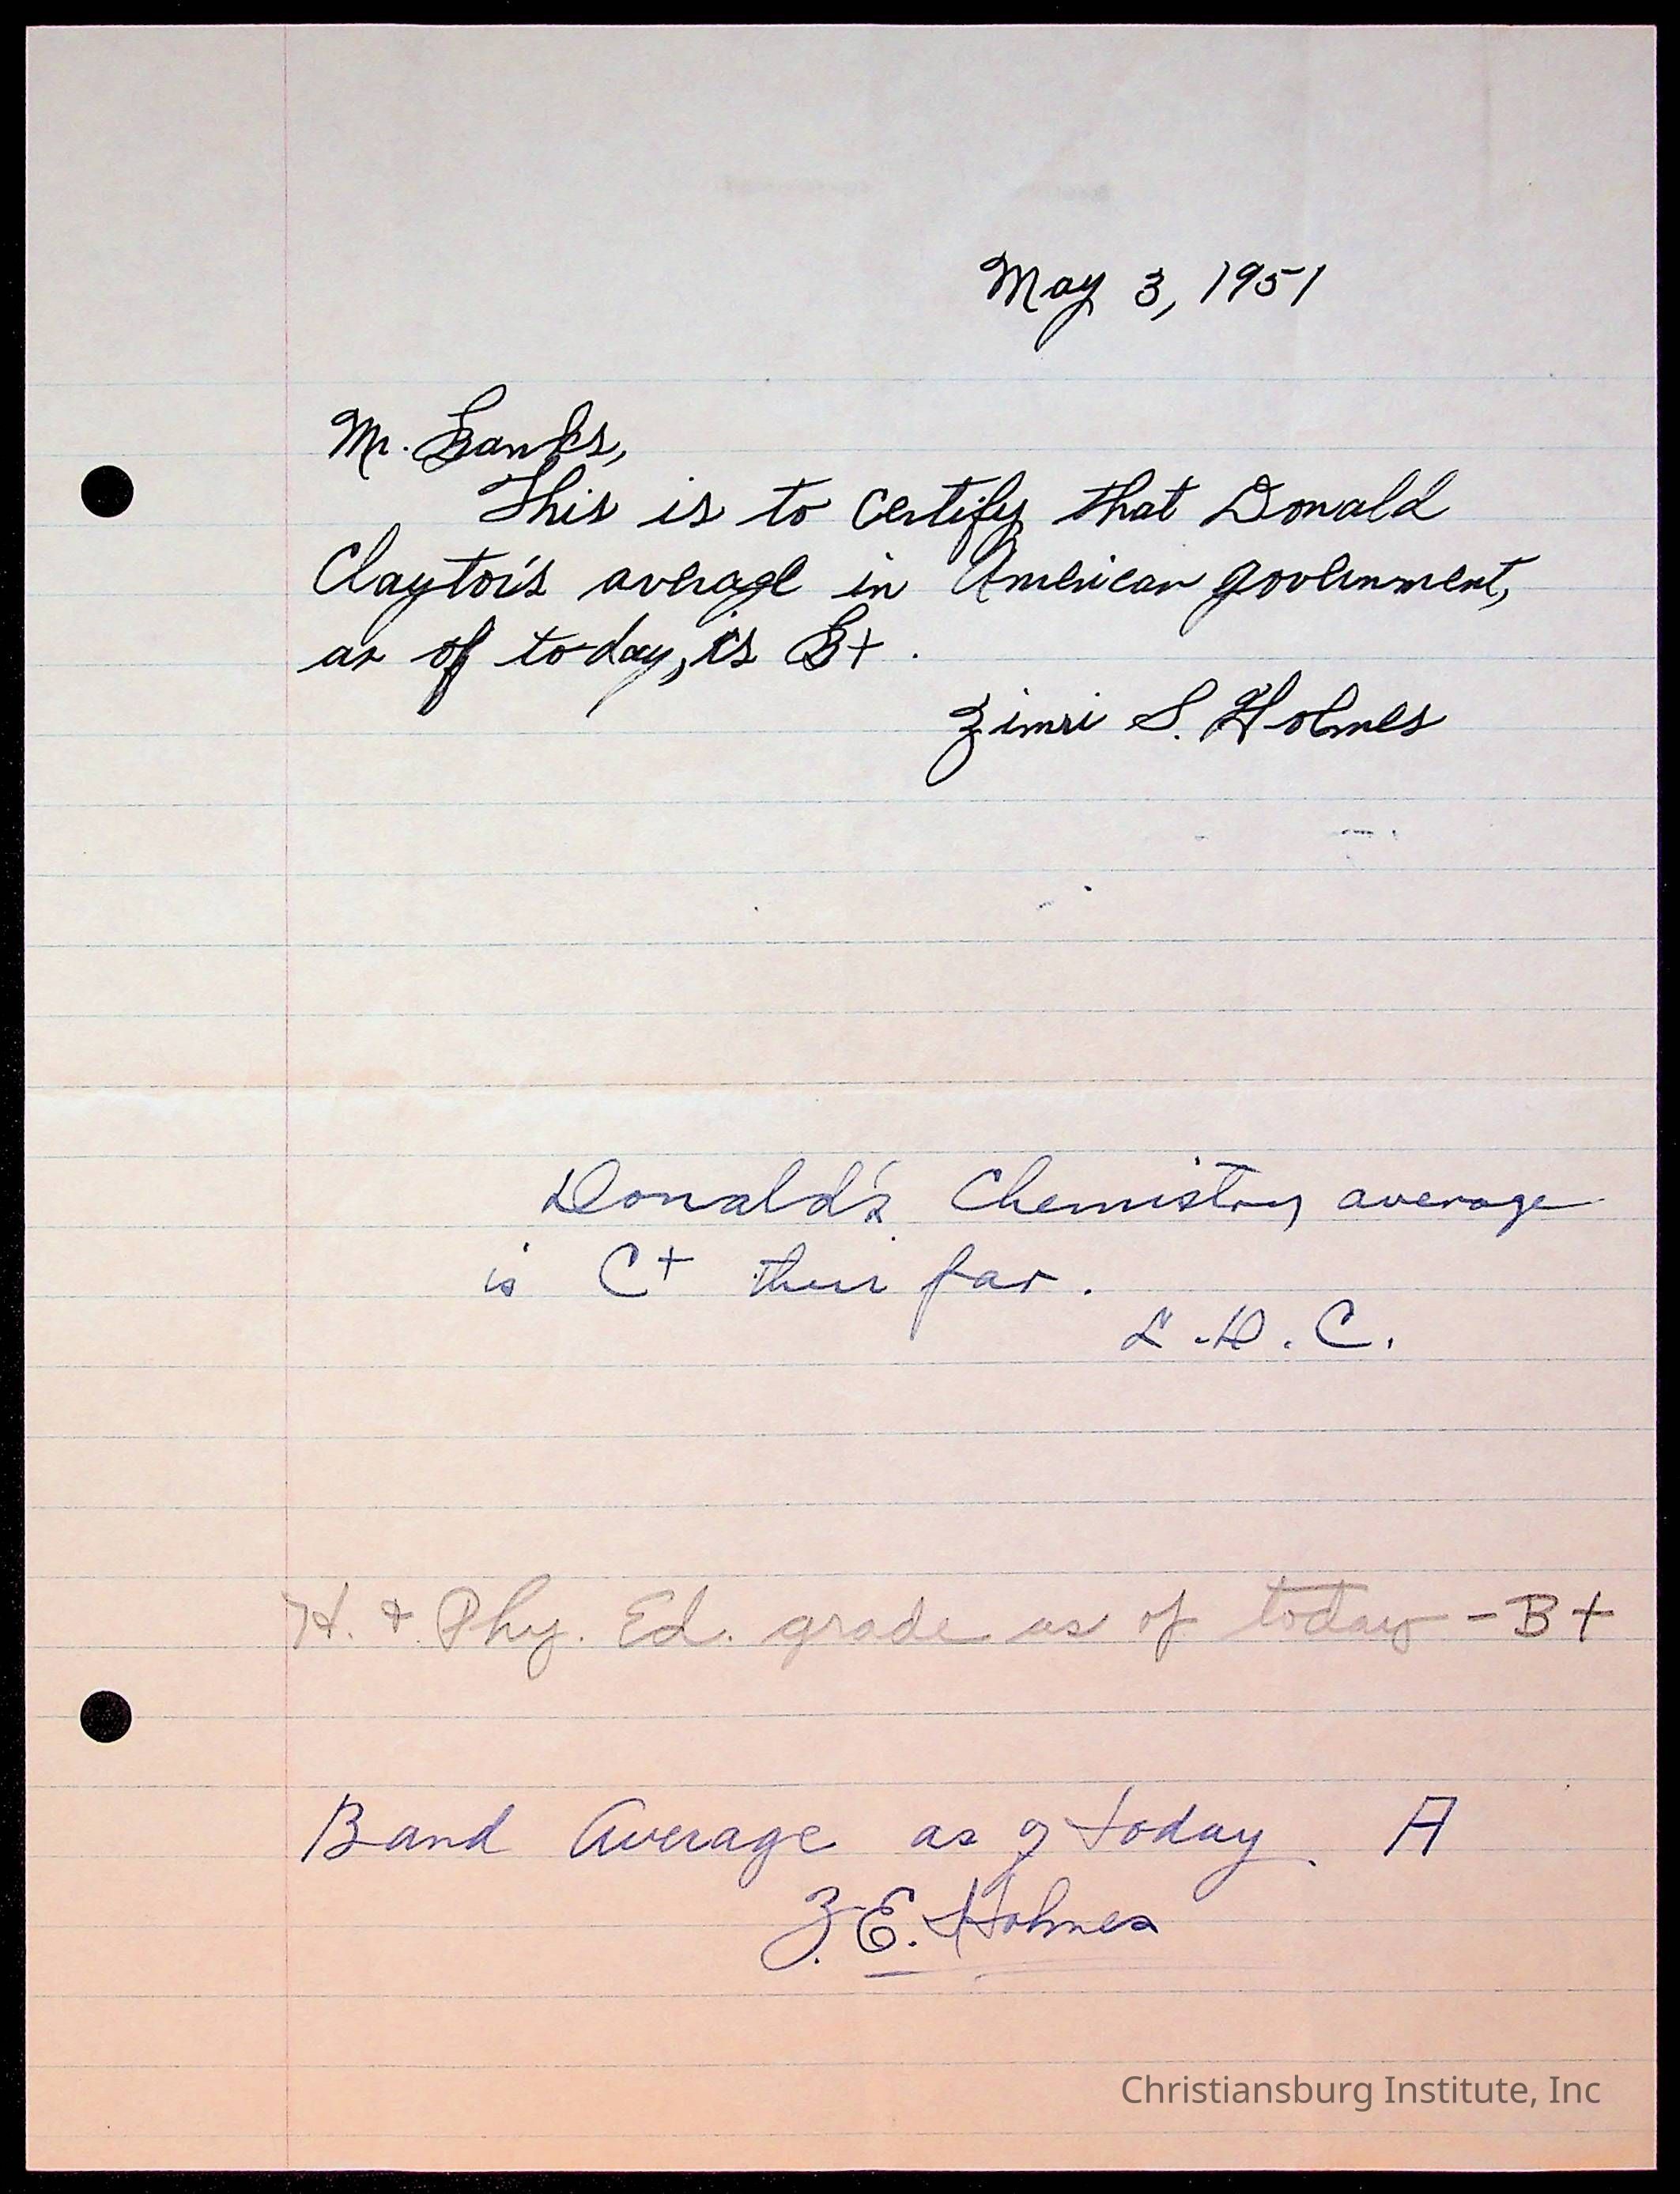 May 3, 1951
Mr. Banks,
This is to certify that Donald
Clayton's average in American government,
as of today, is B+.
Zimri S. Holmes
Donald's Chemistry average
is C+ thus far.
L.D.C.
H. & Phy. Ed. grade as of today - B+
Band Average as of today. A
Z.E. Holmes
Christiansburg Institute, Inc